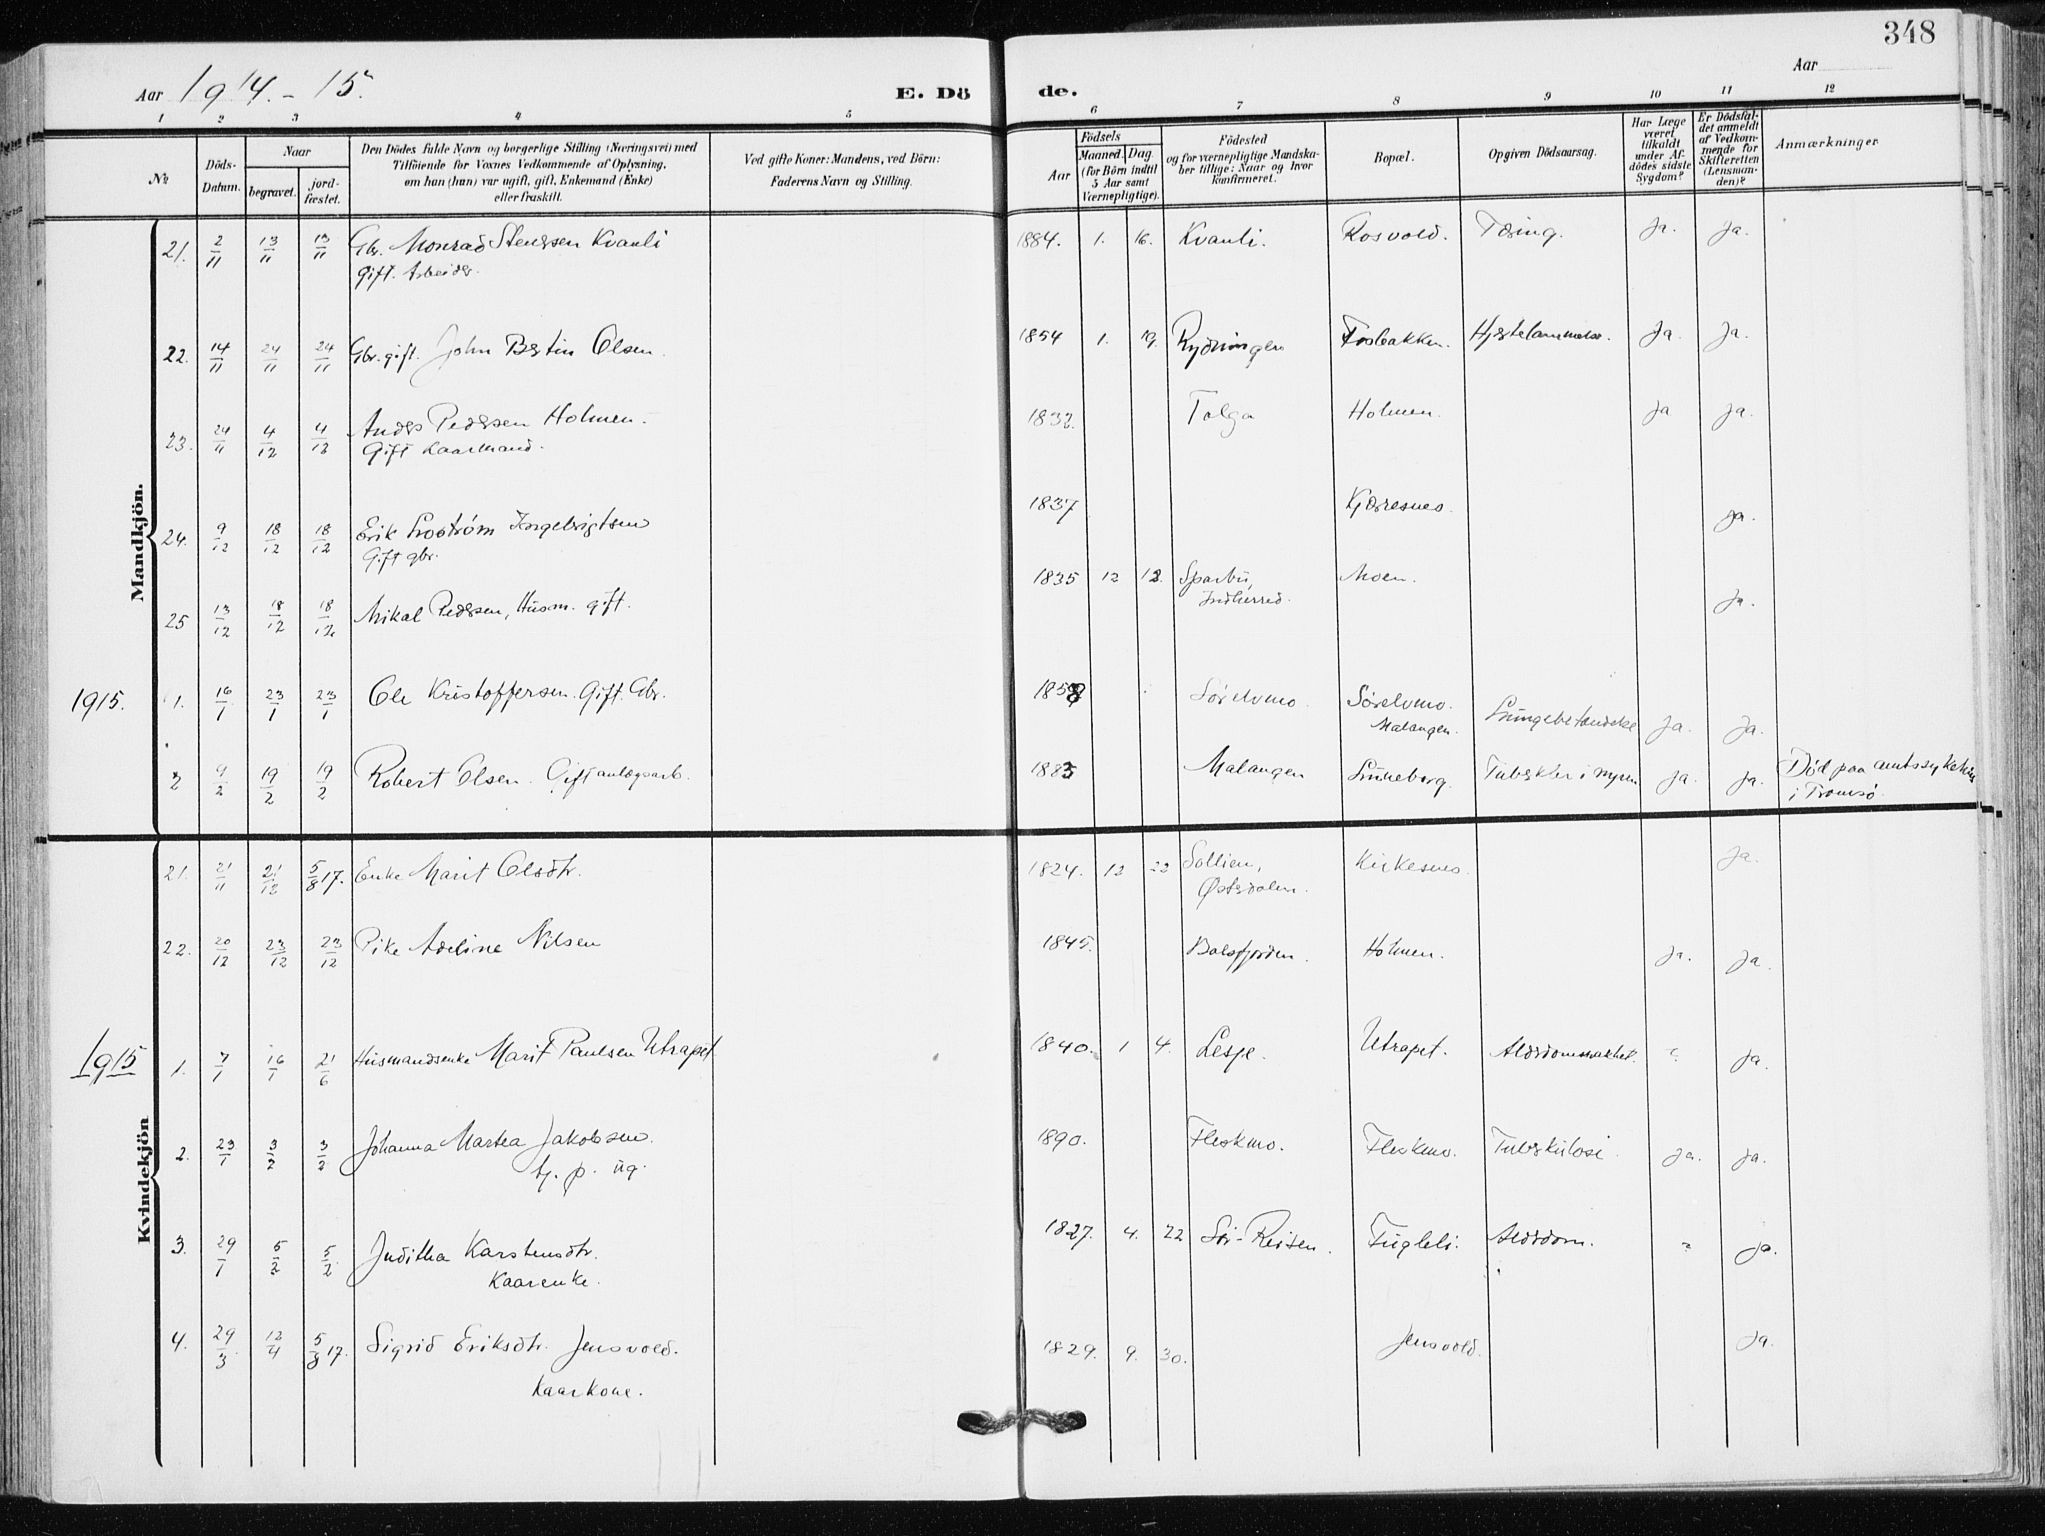 348
Aar 1914.-15. E. Dö de. Aar
1 2 3 4 5 6 7 8 9 10 11 12
№ Döds-Datum. Naar begravet. jord-fæstet. Den Dödes fulde Navn og borgerlige Stilling (Næringsvei) med Tilföiende for Voxnes Vedkommende af Oplysning, om han (hun) var ugift, gift, Enkemand (Enke) eller fraskilt. Ved gifte Koner: Mandens, ved Börn: Faderens Navn og Stilling. Födsels Aar Maaned. Dag. (for Börn indtil 5 Aar samt Værnepligtige). Födested og for værnepligtige Mandskaber tillige: Naar og hvor konfirmeret. Bopæl. Opgiven Dödsaarsag. Har Læge været tilkaldt under Afdödes sidste Sygdom? Er Dödsfaldet anmeldt af Vedkommende for Skifteretten (Lensmanden)? Anmærkninger.
Mandkjön.
21. 2/11 13/11 13/11 Gbr. Monrad Stenersen Kvanli 1884. 1. 16. Kvanli. Rosvold. Tæring. Ja. Ja.
Gift. Arbeider.
22. 14/11 24/11 24/11 Gbr. gift. John Bertin Olsen. 1854 1. 19. Rydningen Fosbakken. Hjertelammelse. Ja. Ja.
23. 24/11 4/12 4/12 Anders Pedersen Holmen. 1832. Tolga Holmen. Ja Ja.
Gift Kaarmand.
24. 9/12 18/12 18/12 Erik Ingebrigtsen 1837 Kjærresnes. Ja.
Gift gbr.
25 13/12 18/12 18/12 Mikal Pedersen, Husm. gift. 1835 12 12. Sparbu, Indherred. Moen. Ja.
1915. 1. 16/1 23/1 23/1 Ole Kristoffersen. Gift. Gbr. 1858 Sörelvmo. Sörelvmo. Malangen. Lungebetændelse Ja. Ja.
2 9/2 19/2 19/2 Robert Olsen. Gift anlægsarb. 1883 Malangen Lunneborg. Tuberkler i nyren Ja. Ja. Död paa amtssykehus i Tromsö.
Kvindekjön
21. 21/11 21/12 5/8 17. Enke Marit Olsdtr. 1824. 12 22 Sollien, Østerdalen. Kirkesnes. Ja.
22. 20/12 23/12 23/12 Pike Adeline Nilsen 1845. Balsfjorden. Holmen. Ja. Ja.
1915 1. 7/1 16/1 21/6 Husmandsenke Marit Paulsen Utrapet 1840. 1 4. Lesje. Utrapet. Alderdomssvakhet. Ja.
2. 23/1 3/2 3/2 Johanna Martea Jakobsen. 1890. Fleskmo. Fleskmo. Tuberkulose. Ja. Ja.
tj. p. ug.
3. 29/1 5/2 5/2 Juditha Karstensdtr. 1827. 4. 22 Sör-Reisen. Fugleli. Alderdom. Ja.
Kaarenke.
4. 29/3 12/4 5/8 17. Sigrid Eriksdtr. Jensvold. 1829. 9. 30. Jensvold. Ja.
Kaarkone.